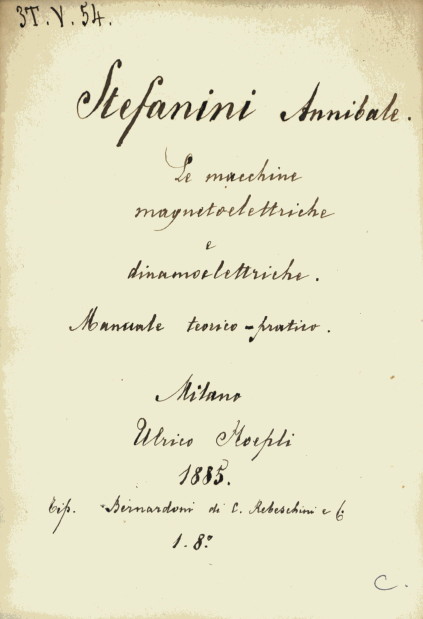 3T.V.54.
Stefanini Annibale.
Le macchine
magnetoelettriche
e
dinamoelettriche.
Manuale teorico-pratico.
Milano
Ulrico Hoepli
1885.
Tip. Bernardoni di C. Rebeschini e C.
1. 8.°
C.